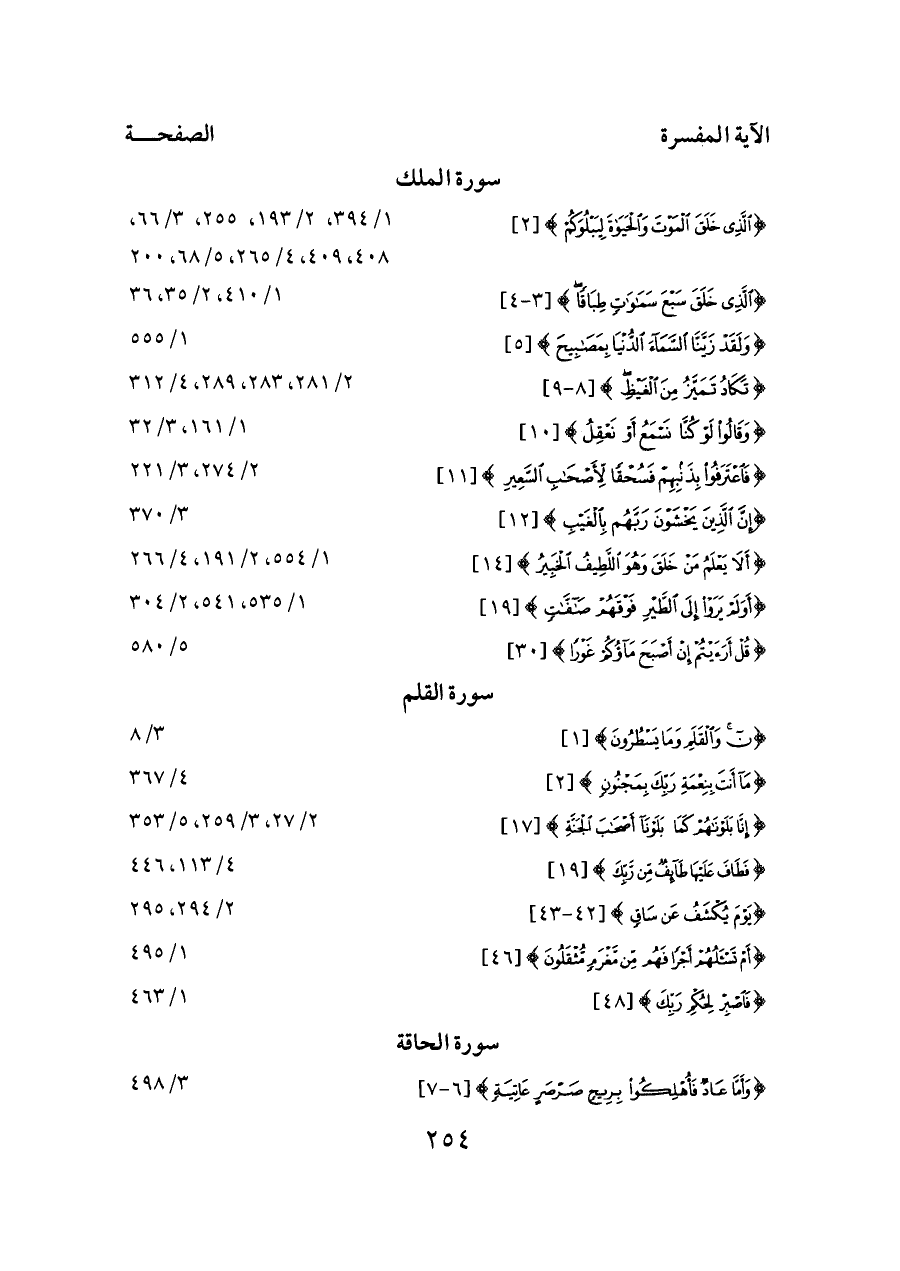 الآية المفسرة الصفحـــة
سورة الملك
﴿ ٱلَّذِى خَلَقَ ٱلْمَوْتَ وَٱلْحَيَوٰةَ لِيَبْلُوَكُمْ ﴾ [٢] ١/ ٣٩٤، ٢/ ١٩٣، ٢٥٥، ٣/ ٦٦،
٤٠٨، ٤٠٩، ٤/ ٢٦٥، ٥/ ٦٨، ٢٠٠
﴿ٱلَّذِى خَلَقَ سَبْعَ سَمَٰوَٰتٍ طِبَاقًاۖ ﴾ [٣-٤] ١/ ٤١٠، ٢/ ٣٥، ٣٦
﴿ وَلَقَدْ زَيَّنَّا ٱلسَّمَآءَ ٱلدُّنْيَا بِمَصَٰبِيحَ ﴾ [٥] ١/ ٥٥٥
﴿ تَكَادُ تَمَيَّزُ مِنَ ٱلْغَيْظِۖ ﴾ [٨-٩] ٢/ ٢٨١، ٢٨٣، ٢٨٩، ٤/ ٣١٢
﴿ وَقَالُوا۟ لَوْ كُنَّا نَسْمَعُ أَوْ نَعْقِلُ ﴾ [١٠] ١/ ١٦١، ٣/ ٣٢
﴿ فَٱعْتَرَفُوا۟ بِذَنۢبِهِمْ فَسُحْقًا لِّأَصْحَٰبِ ٱلسَّعِيرِ ﴾ [١١] ٢/ ٢٧٤، ٣/ ٢٢١
﴿إِنَّ ٱلَّذِينَ يَخْشَوْنَ رَبَّهُم بِٱلْغَيْبِ ﴾ [١٢] ٣/ ٣٧٠
﴿ أَلَا يَعْلَمُ مَنْ خَلَقَ وَهُوَ ٱللَّطِيفُ ٱلْخَبِيرُ ﴾ [١٤] ١/ ٥٥٤، ٢/ ١٩١، ٤/ ٢٦٦
﴿أَوَلَمْ يَرَوْا۟ إِلَى ٱلطَّيْرِ فَوْقَهُمْ صَٰٓفَّٰتٍ ﴾ [١٩] ١/ ٥٣٥، ٥٤١، ٢/ ٣٠٤
﴿ قُلْ أَرَءَيْتُمْ إِنْ أَصْبَحَ مَآؤُكُمْ غَوْرًا ﴾ [٣٠] ٥/ ٥٨٠
سورة القلم
﴿نٓ ۚ وَٱلْقَلَمِ وَمَا يَسْطُرُونَ ﴾ [١] ٣/ ٨
﴿ مَآ أَنتَ بِنِعْمَةِ رَبِّكَ بِمَجْنُونٍ ﴾ [٢] ٤/ ٣٦٧
﴿ إِنَّا بَلَوْنَٰهُمْ كَمَا بَلَوْنَآ أَصْحَٰبَ ٱلْجَنَّةِ ﴾ [١٧] ٢/ ٢٧، ٣/ ٢٥٩، ٥/ ٣٥٣
﴿ فَطَافَ عَلَيْهَا طَآئِفٌ مِّن رَّبِّكَ ﴾ [١٩] ٤/ ١١٣، ٤٤٦
﴿يَوْمَ يُكْشَفُ عَن سَاقٍ ﴾ [٤٢-٤٣] ٢/ ٢٩٤، ٢٩٥
﴿ أَمْ تَسْـَٔلُهُمْ أَجْرًا فَهُم مِّن مَّغْرَمٍ مُّثْقَلُونَ ﴾ [٤٦] ١/ ٤٩٥
﴿ فَٱصْبِرْ لِحُكْمِ رَبِّكَ ﴾ [٤٨] ١/ ٤٦٣
سورة الحاقة
﴿ وَأَمَّا عَادٌ فَأُهْلِكُوا۟ بِرِيحٍ صَرْصَرٍ عَاتِيَةٍ ﴾ [٦-٧] ٣/ ٤٩٨
٢٥٤